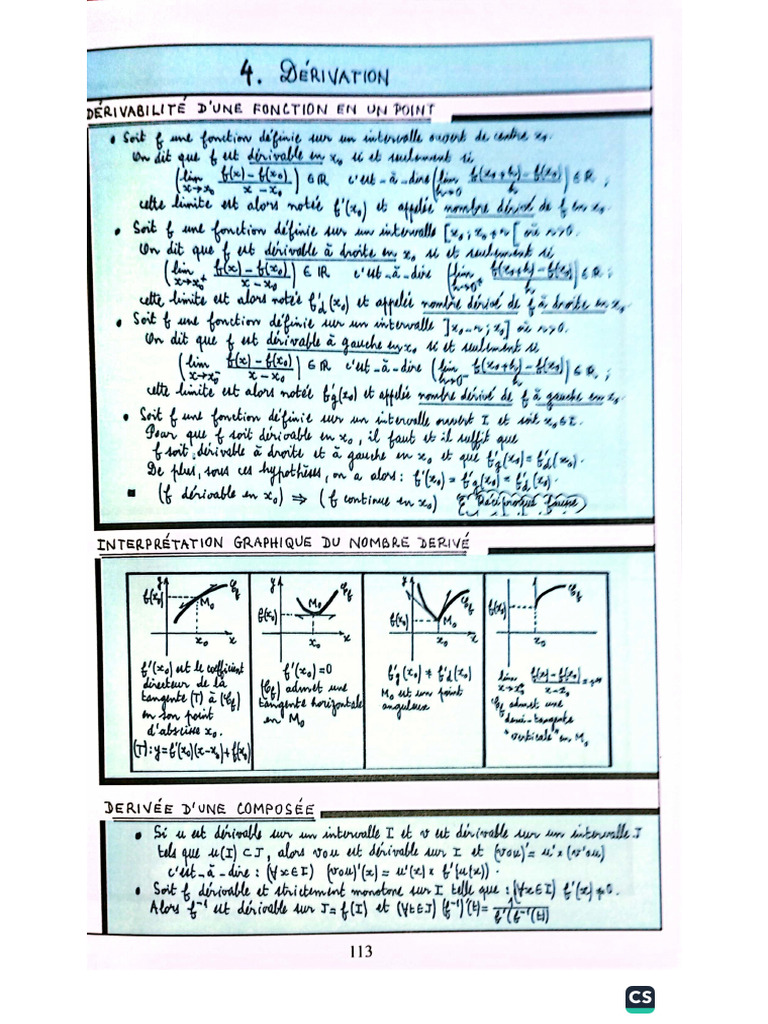 4. DÉRIVATION
DÉRIVABILITÉ D'UNE FONCTION EN UN POINT
• Soit f une fonction définie sur un intervalle ouvert de centre x₀.
On dit que f est dérivable en x₀ si et seulement si
(lim x→x₀ (f(x)-f(x₀))/(x-x₀)) ∈ ℝ c'est-à-dire (lim h→0 (f(x₀+h)-f(x₀))/h) ∈ ℝ ;
cette limite est alors notée f'(x₀) et appelée nombre dérivé de f en x₀.
• Soit f une fonction définie sur un intervalle [x₀ ; x₀+r[ où r>0.
On dit que f est dérivable à droite en x₀ si et seulement si
(lim x→x₀⁺ (f(x)-f(x₀))/(x-x₀)) ∈ ℝ c'est-à-dire (lim h→0⁺ (f(x₀+h)-f(x₀))/h) ∈ ℝ ;
cette limite est alors notée f'd(x₀) et appelée nombre dérivé de f à droite en x₀.
• Soit f une fonction définie sur un intervalle ]x₀-r ; x₀] où r>0.
On dit que f est dérivable à gauche en x₀ si et seulement si
(lim x→x₀⁻ (f(x)-f(x₀))/(x-x₀)) ∈ ℝ c'est-à-dire (lim h→0⁻ (f(x₀+h)-f(x₀))/h) ∈ ℝ ;
cette limite est alors notée f'g(x₀) et appelée nombre dérivé de f à gauche en x₀.
• Soit f une fonction définie sur un intervalle ouvert I et soit x₀∈I.
Pour que f soit dérivable en x₀, il faut et il suffit que
f soit dérivable à droite et à gauche en x₀ et que f'g(x₀)=f'd(x₀).
De plus, sous ces hypothèses, on a alors : f'(x₀) = f'g(x₀) = f'd(x₀).
■ (f dérivable en x₀) ⇒ (f continue en x₀) (Réciproque fausse)
INTERPRÉTATION GRAPHIQUE DU NOMBRE DERIVÉ
y f(x₀) M₀ 𝒞f x₀ x
f'(x₀) est le coefficient
directeur de la
tangente (T) à (𝒞f)
en son point
d'abscisse x₀.
(T) : y=f'(x₀)(x-x₀)+f(x₀)
y f(x₀) M₀ 𝒞f x₀ x
f'(x₀)=0
(𝒞f) admet une
tangente horizontale
en M₀
y f(x₀) M₀ 𝒞f x₀ x
f'g(x₀) ≠ f'd(x₀)
M₀ est un point
anguleux
f(x₀) 𝒞f x₀
lim x→x₀ (f(x)-f(x₀))/(x-x₀) = +∞
𝒞f admet une
demi-tangente
"verticale" en M₀
DERIVÉE D'UNE COMPOSÉE
• Si u est dérivable sur un intervalle I et v est dérivable sur un intervalle J
tels que u(I) ⊂ J, alors vou est dérivable sur I et (vou)' = u' × (v'ou)
c'est-à-dire : (∀x∈I) (vou)'(x) = u'(x) × v'(u(x)).
• Soit f dérivable et strictement monotone sur I telle que : (∀x∈I) f'(x) ≠ 0.
Alors f⁻¹ est dérivable sur J = f(I) et (∀t∈J) (f⁻¹)'(t) = 1/(f'(f⁻¹(t)))
113
CS